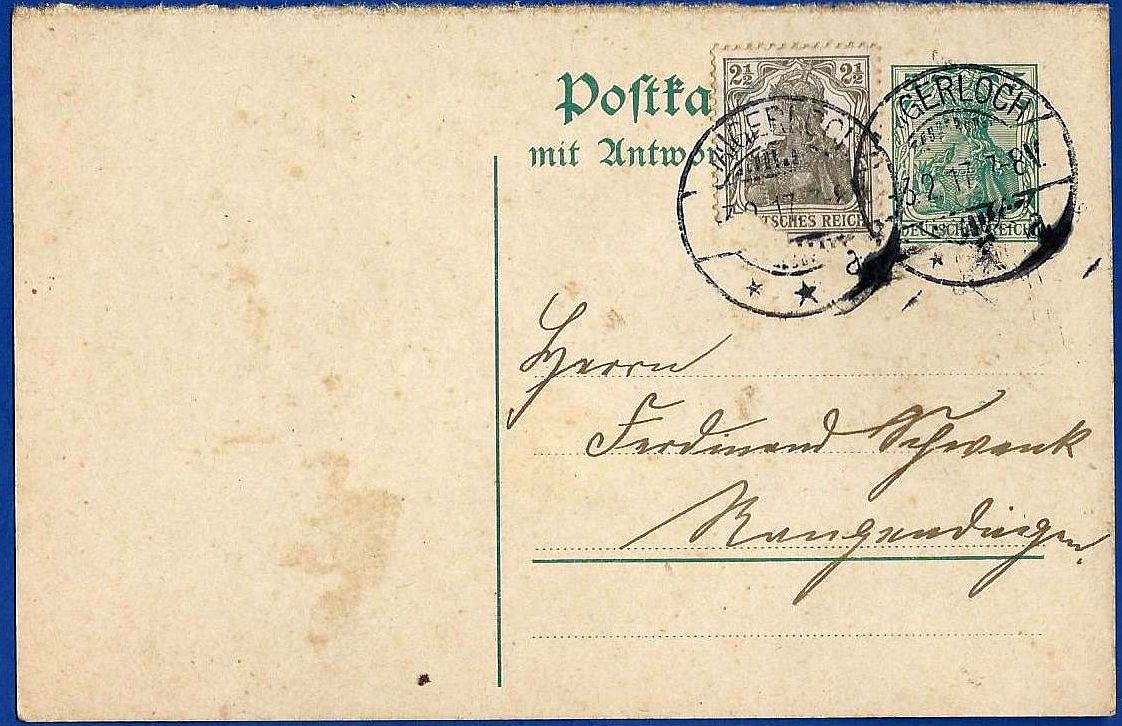 Postka
mit Antwor
2½ 2½
DEUTSCHES REICH
DEUTSCHES REICH
GERLOCH
3.2.17.7-8N.
a
Herrn
Ferdinand Schwenk
Rangendingen.